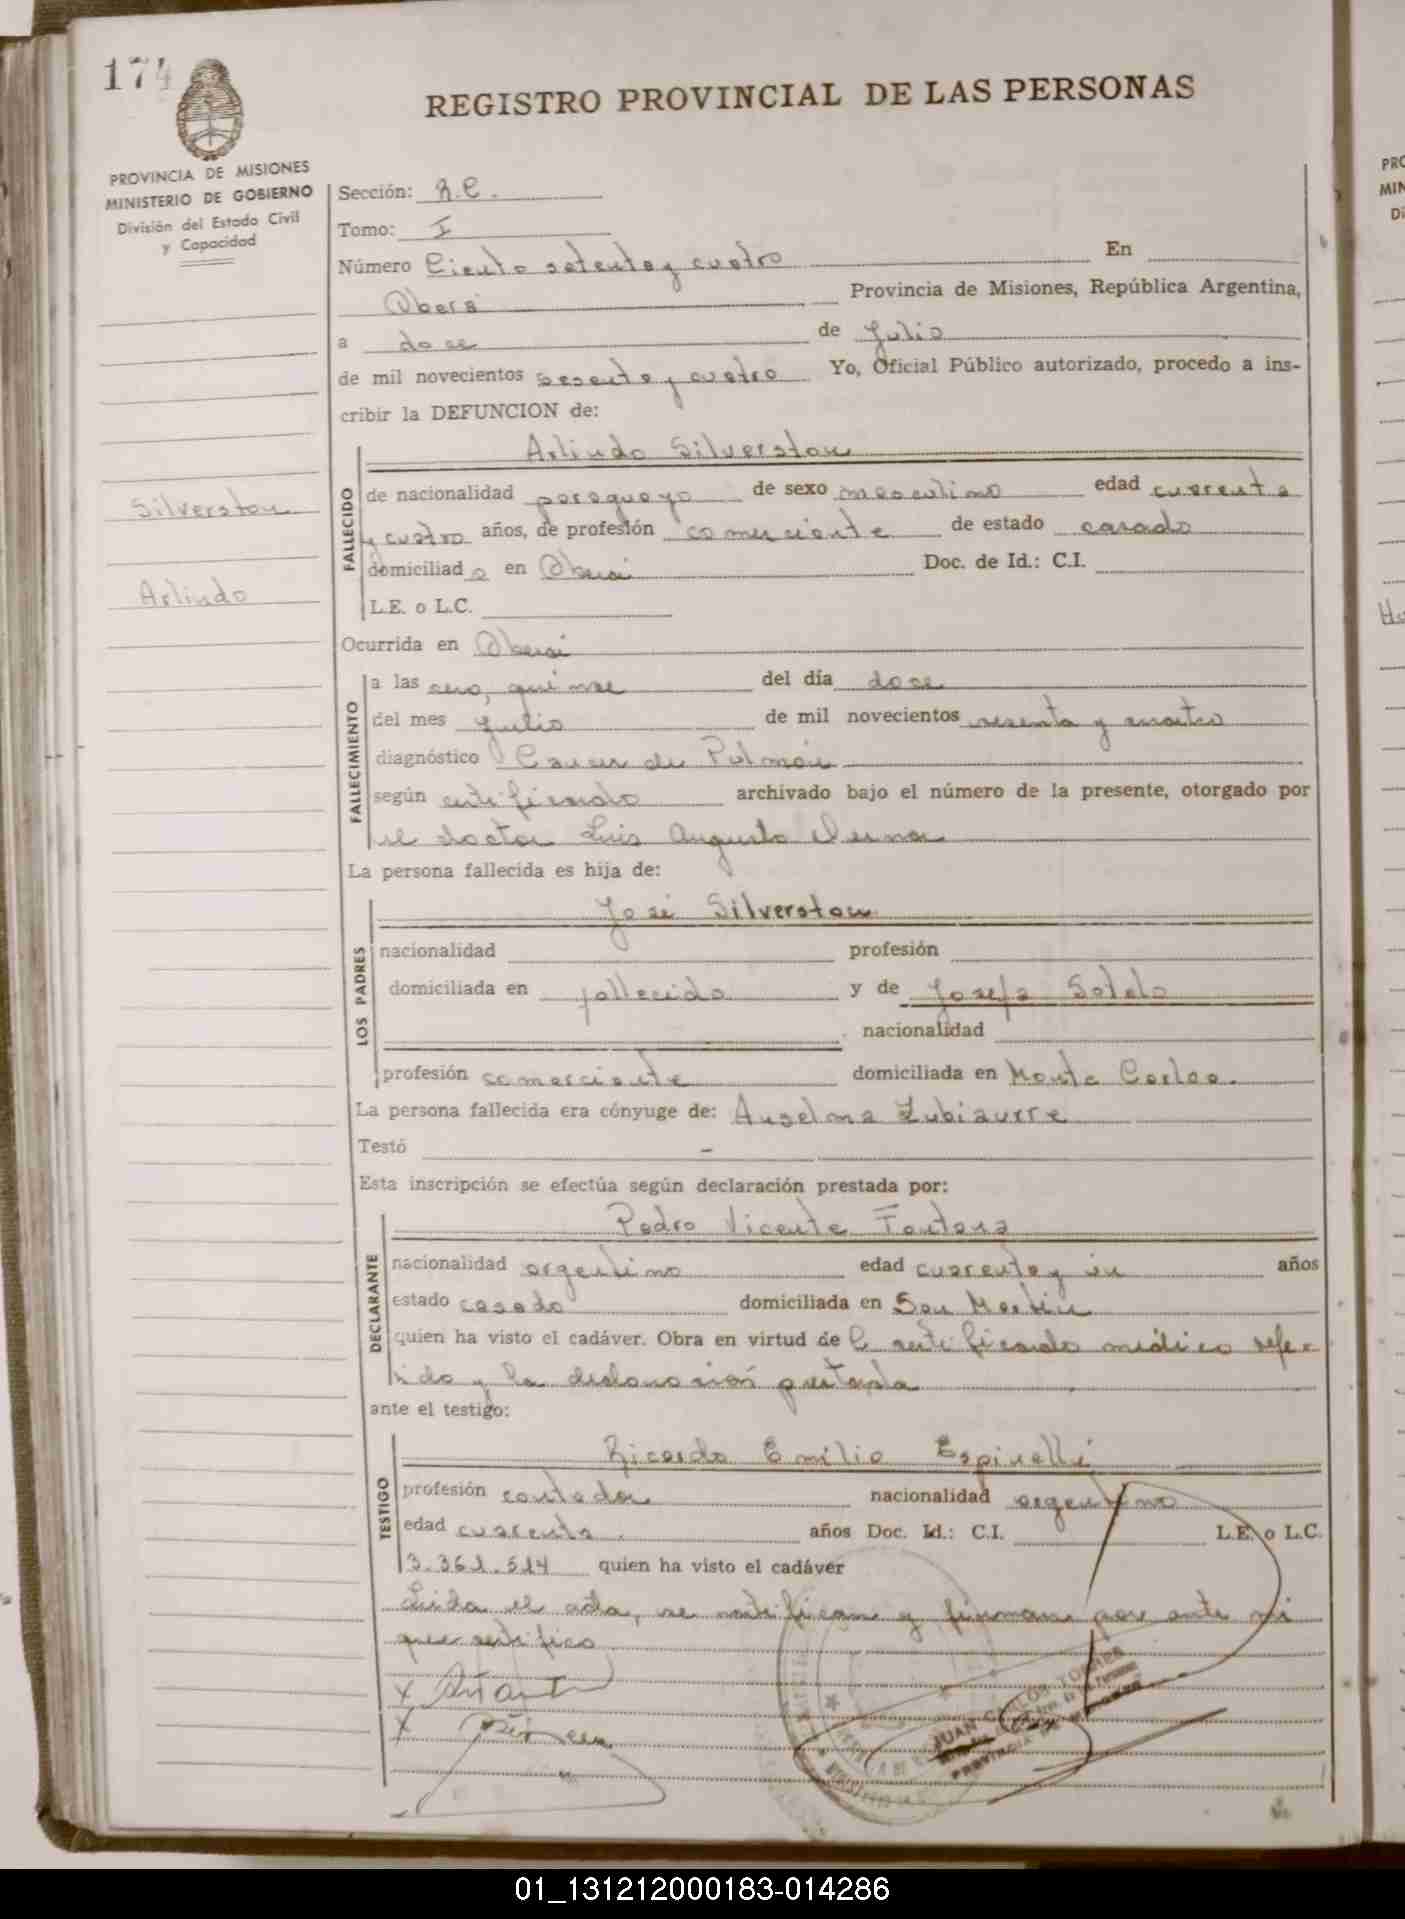 174
REGISTRO PROVINCIAL DE LAS PERSONAS
PROVINCIA DE MISIONES
MINISTERIO DE GOBIERNO
División del Estado Civil
y Capacidad
Silverston
Arlindo
Sección: R.C.
Tomo: I
Número Ciento setenta y cuatro En
Oberá Provincia de Misiones, República Argentina,
a doce de Julio
de mil novecientos sesenta y cuatro Yo, Oficial Público autorizado, procedo a ins-
cribir la DEFUNCION de:
FALLECIDO
Arlindo Silverston
de nacionalidad paraguayo de sexo masculino edad cuarenta
y cuatro años, de profesión comerciante de estado casado
domiciliado en Oberá Doc. de Id.: C.I.
L.E. o L.C.
Ocurrida en Oberá
FALLECIMIENTO
a las cero, quince del día doce
del mes Julio de mil novecientos sesenta y cuatro
diagnóstico Cancer de Pulmón
según certificado archivado bajo el número de la presente, otorgado por
el doctor Luis Augusto
La persona fallecida es hija de:
LOS PADRES
José Silverston
nacionalidad profesión
domiciliada en fallecido y de Josefa Sotelo
nacionalidad
profesión comerciante domiciliada en Monte Carlos.
La persona fallecida era cónyuge de: Anselma Zubiaurre
Testó -
Esta inscripción se efectúa según declaración prestada por:
DECLARANTE
Pedro Vicente Fontana
nacionalidad argentino edad cuarenta y un años
estado casado domiciliada en San Martin
quien ha visto el cadáver. Obra en virtud de el certificado médico refe-
rido y la declaración prestada
ante el testigo:
TESTIGO
Ricardo Emilio Espinelli
profesión contador nacionalidad argentino
edad cuarenta. años Doc. Id.: C.I. L.E. o L.C.
3.361.514 quien ha visto el cadáver
Leida el acta, se ratifican y firman por ante mi
que certifico
JUAN CARLOS TORRES
01_131212000183-014286